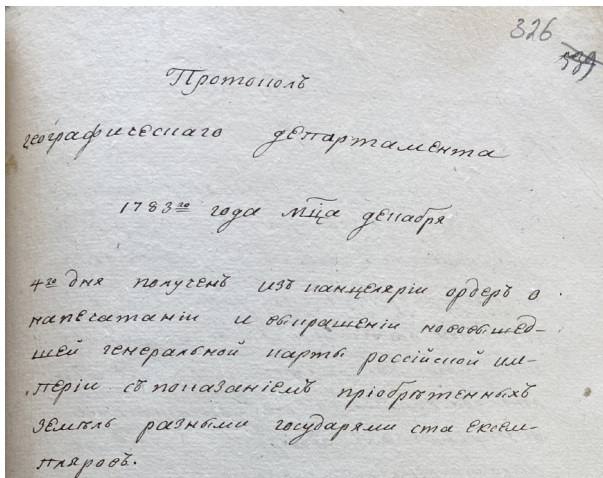 326
599
Протоколъ
географическаго департамента
1783го года мц҃а декабря
4го дня полученъ изъ канцеляріи ордеръ о
напечатаніи и выкрашеніи нововышед-
шей генеральной карты россійской им-
періи съ показаніемъ пріобрѣтенныхъ
земель разными государями ста ексем-
пляровъ.